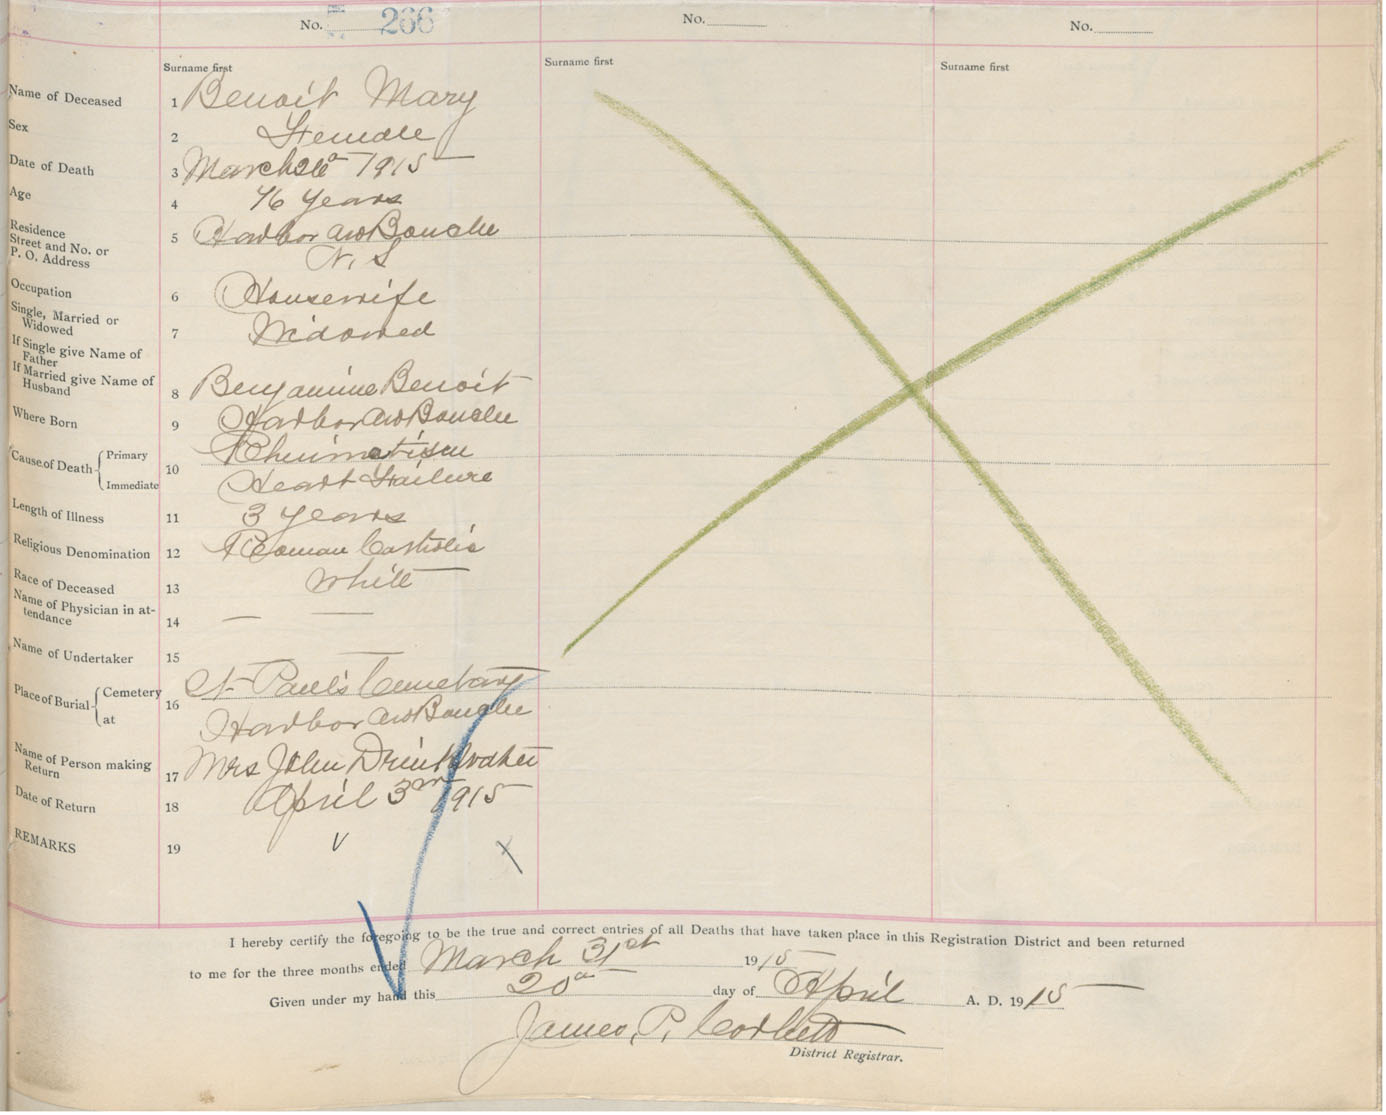 No. 266 No. No.
Surname first Surname first Surname first
Name of Deceased 1 Benoit Mary
Sex 2 Female
Date of Death 3 March 26th 1915
Age 4 76 years
Residence
Street and No. or 5 Harbor au Bouche
P. O. Address N. S
Occupation 6 Housewife
Single, Married or
Widowed 7 Widowed
If Single give Name of
Father
If Married give Name of
Husband 8 Benjamine Benoit
Where Born 9 Harbor au Bouche
Cause of Death Primary Rheumatism
10
Immediate Heart Failure
Length of Illness 11 3 years
Religious Denomination 12 Roman Catholic
Race of Deceased 13 White
Name of Physician in at-
tendance 14 — —
Name of Undertaker 15 —
Place of Burial Cemetery St Paul's Cemetary
16
at Harbor au Bouche
Name of Person making
Return 17 Mrs John Drinkwater
Date of Return 18 April 3rd 1915
REMARKS 19
I hereby certify the foregoing to be the true and correct entries of all Deaths that have taken place in this Registration District and been returned
to me for the three months ended March 31st 1915
Given under my hand this 20th day of April A. D. 1915
James. P. Corbett
District Registrar.